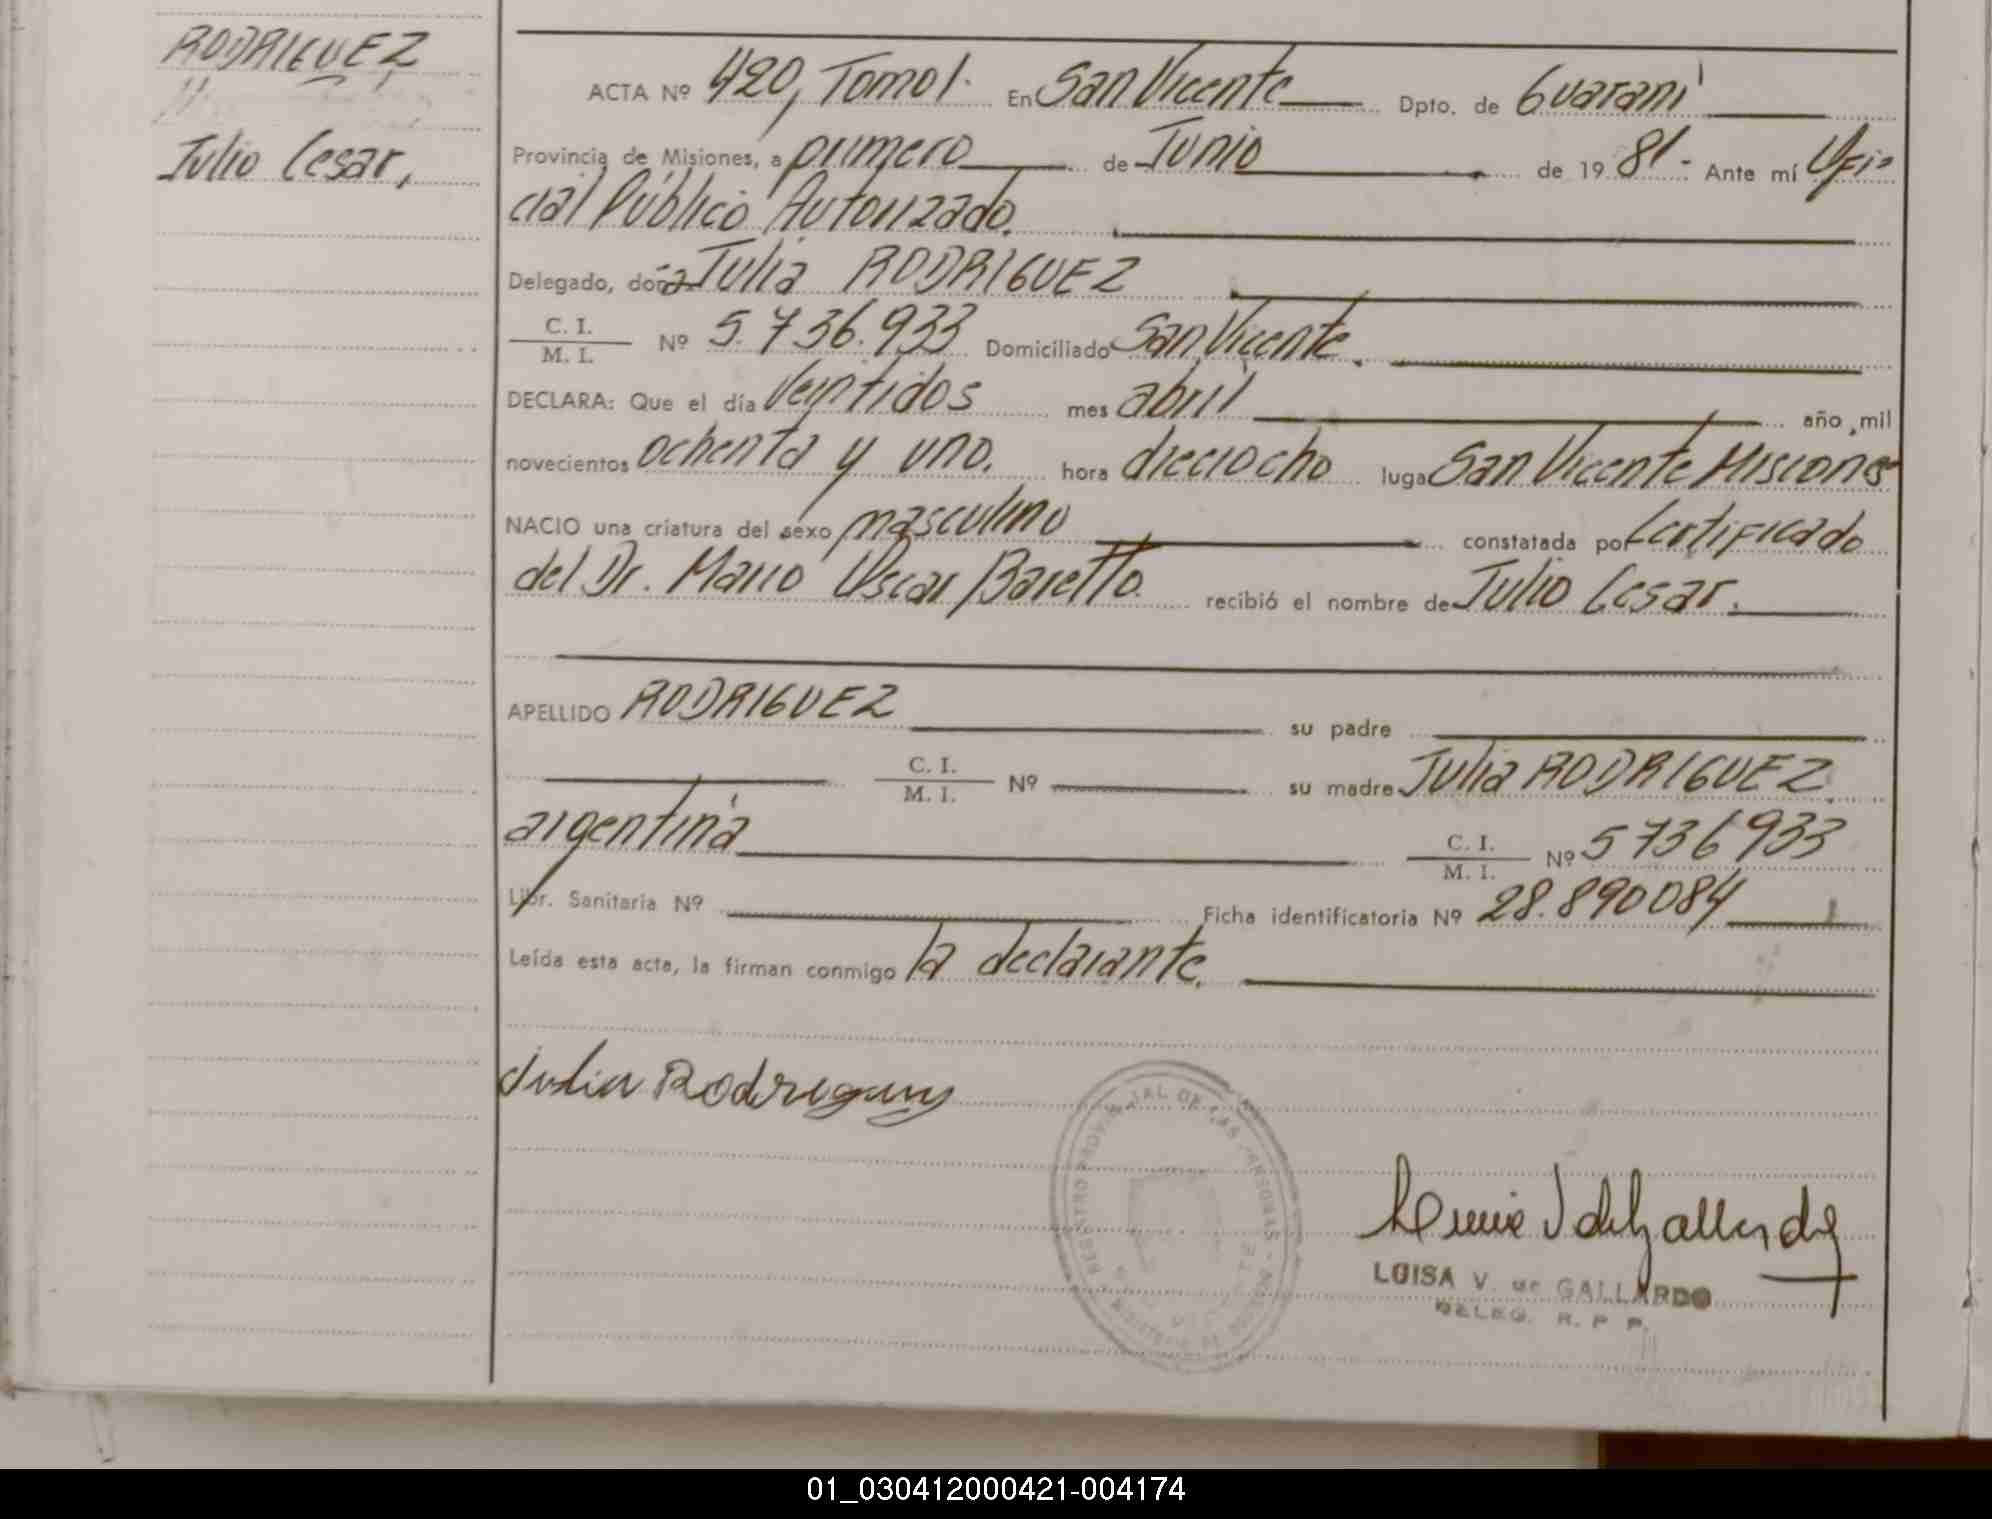 RODRIGUEZ
Julio Cesar,
ACTA Nº 420, Tomo 1. En San Vicente Dpto. de Guaraní
Provincia de Misiones, a primero de Junio de 1981.- Ante mí Ofi-
cial Público Autorizado.
Delegado, doña Julia RODRIGUEZ
C. I.
M. I. Nº 5.736.933 Domiciliado San Vicente.
DECLARA: Que el día Veintidos mes abril año mil
novecientos ochenta y uno. hora dieciocho luga San Vicente Misiones
NACIO una criatura del sexo masculino constatada por Certificado
del Dr. Mario Oscar Baretto. recibió el nombre de Julio Cesar.
APELLIDO RODRIGUEZ su padre
C. I.
M. I. Nº su madre Julia RODRIGUEZ.
argentina C. I.
M. I. Nº 5736933
Libr. Sanitaria Nº Ficha identificatoria Nº 28.890084
Leída esta acta, la firman conmigo la declarante.
Julia Rodriguez
REGISTRO PROVINCIAL DE LAS PERSONAS
LUISA V. de GALLARDO
DELEG. R. P. P.
01_030412000421-004174